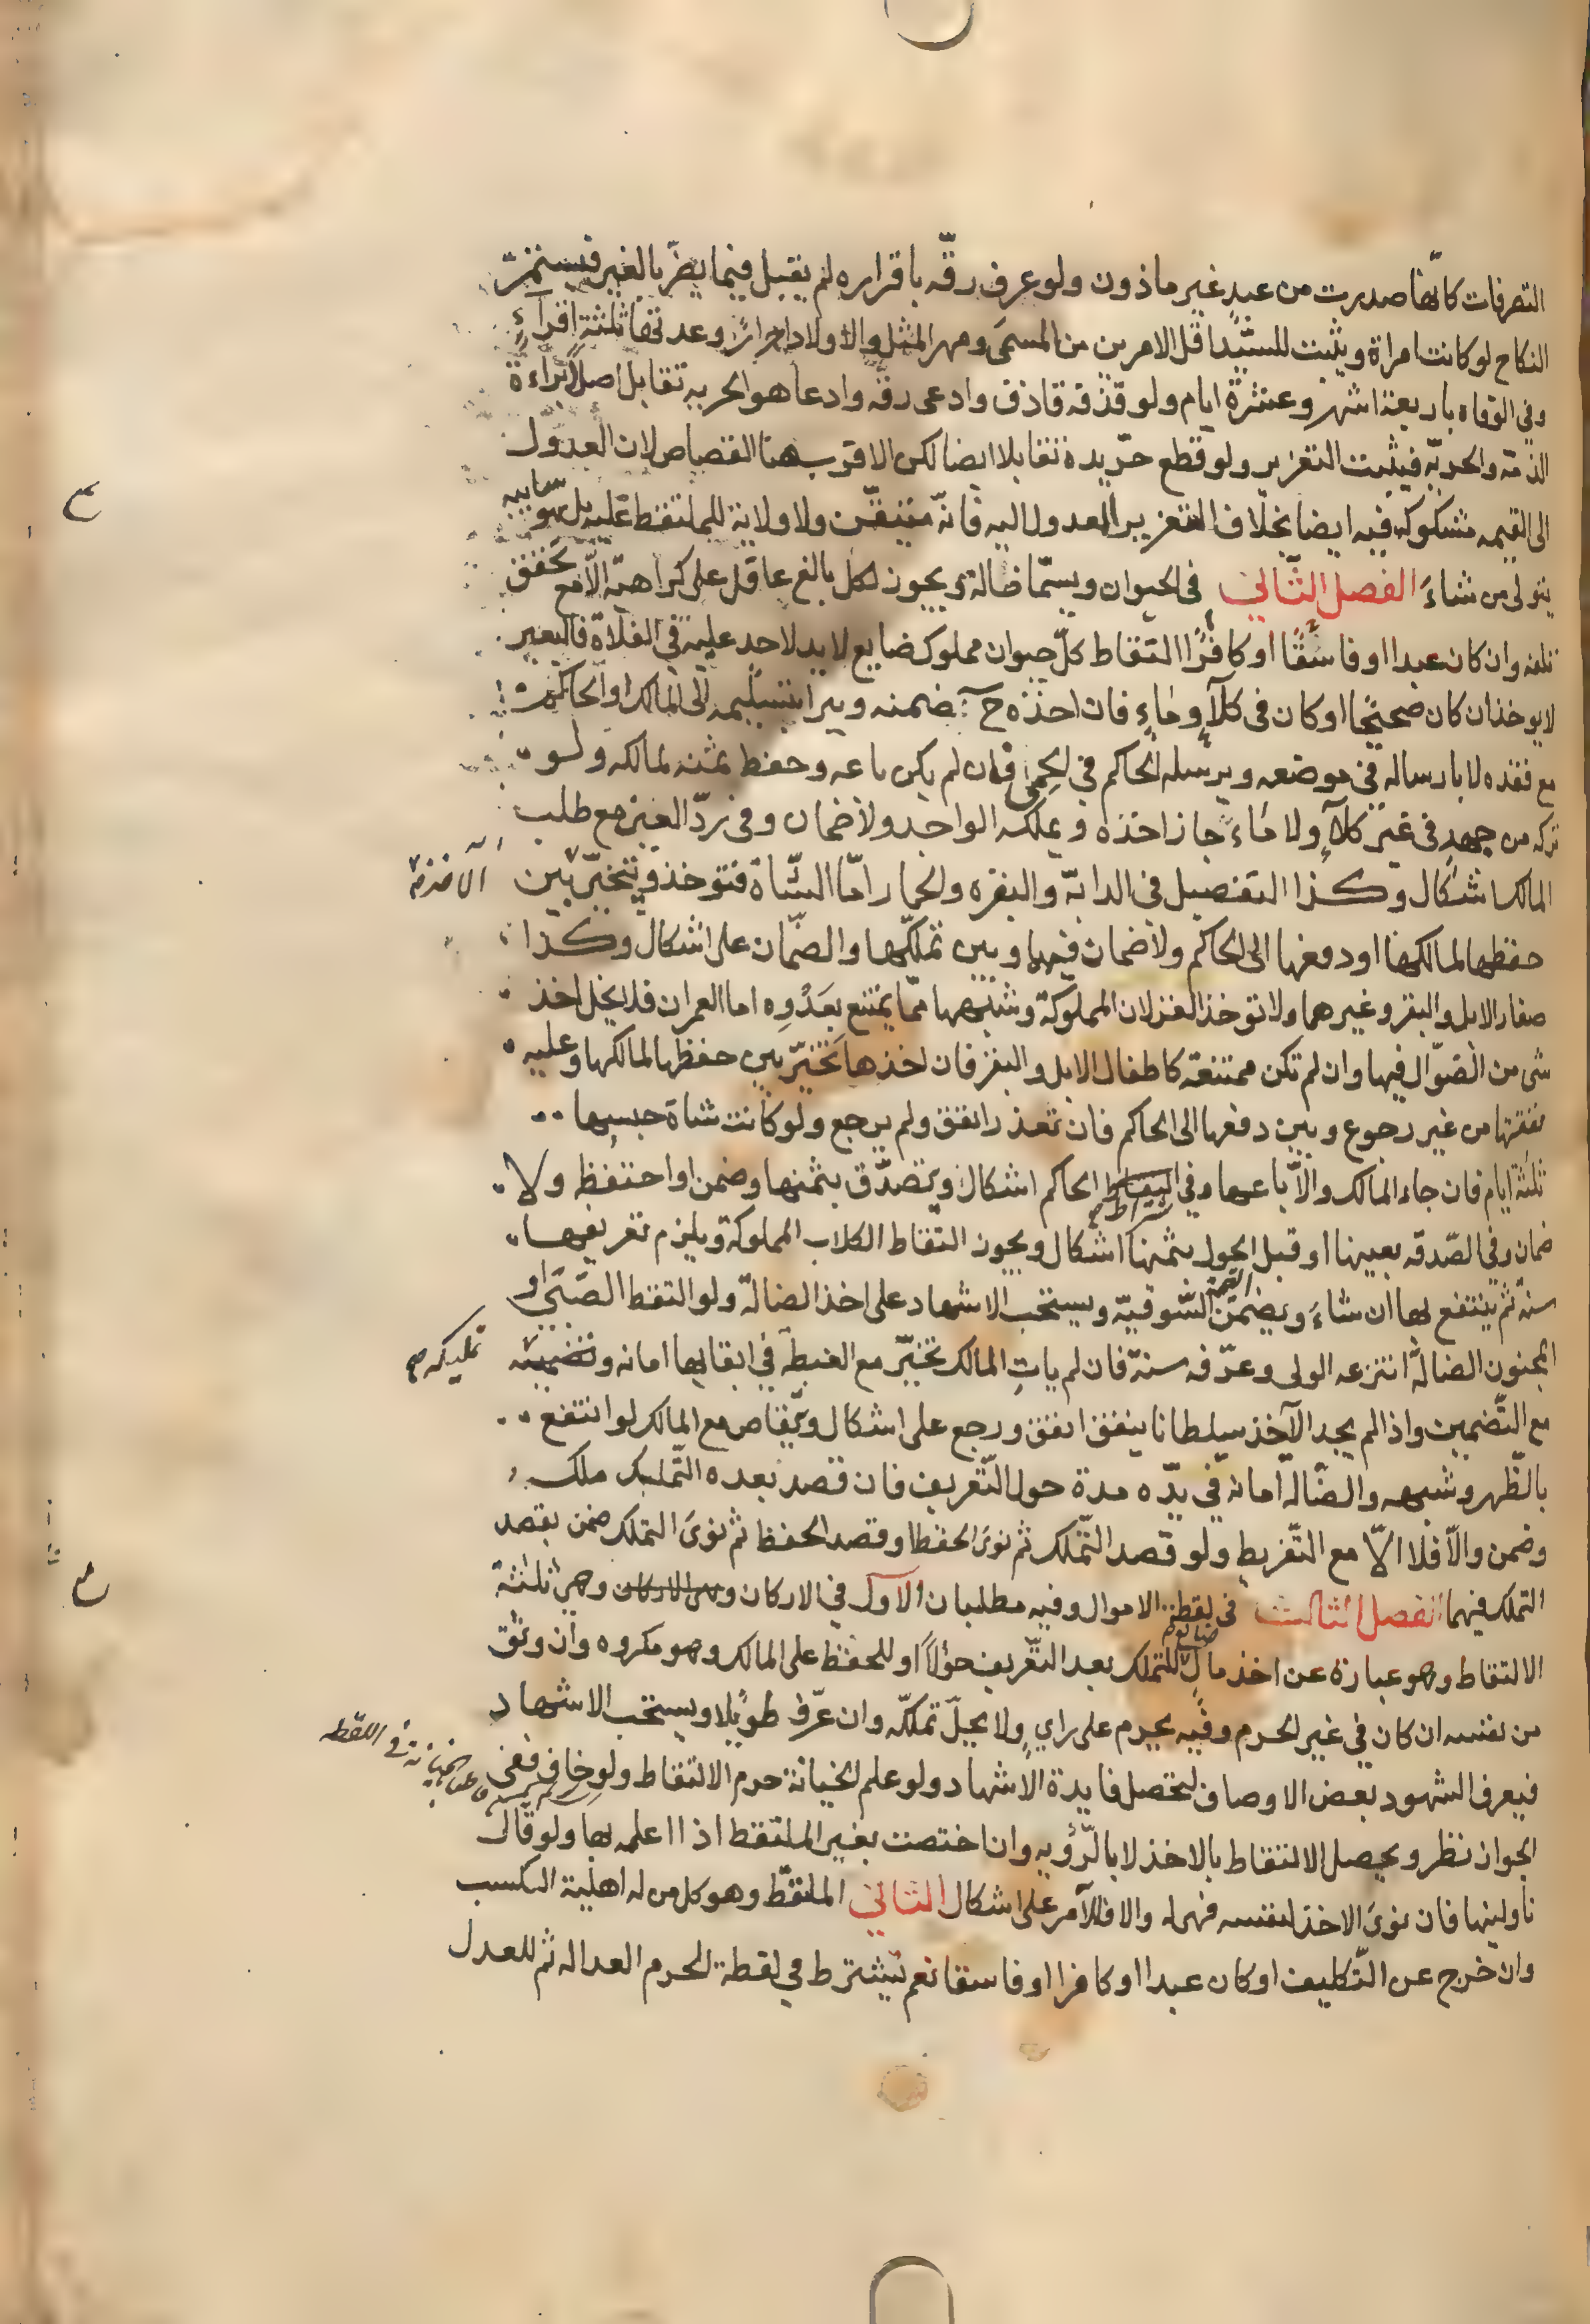 التصرفات كانّها صدرت من عبدٍ غير ماذون ولو عرف رقّه باقراره لم يقبل فيما يضرّ بالغير فيستمرّ
النكاح لو كانت امراة ويثبت للسيّد اقل الامرين من المسمى ومهر المثل والاولاد احرارٌ وعدتها ثلثة اقراءٍ
وفي الوفاه باربعة اشهر وعشرة ايام ولو قذفه قاذف وادعى رقّه وادعا هو الحريه تقابل اصلا براءة
الذمة والحريّه فيثبت التعزير ولو قطع حرّ يده تقابلا ايضا لكن الاقرب هنا القصاص لان العدول
الى القيمه مشكوك فيه ايضا بخلاف التعزير المعدول اليه فانّه متيقّن ولا ولاية للملتقط عليه بل هو سايبه
يتولى من شاءَ الفصل الثاني في الحيوان ويسمّا ضالة ويجوز لكل بالغ عاقل على كراهيّه الّا مع تحقق
تلفه وان كان عبدا او فاسقًا او كافرًا التقاط كلّ حيوان مملوك ضايع لا يد لاحد عليه في الفلاة فالبعير
لا يوخذ ان كان صحيحًا او كان في كلآٍ وماءٍ فان اخذه ح ضمنه ويبرا بتسليمه الى المالك او الحاكم
مع فقده لا بارساله في موضعه ويرسله الحاكم في الحمى فان لم يكن باعه وحفظ ثمنه لمالكه ولو
تركه من جهدٍ في غير كلآٍ ولا ماءٍ جاز اخذه ويملكه الواجد ولا ضمان وفي ردّ العين مع طلب
المالك اشكال وكذا التفصيل في الدابّه والبقره والحمار امّا الشّاة فتوخذ ويتخيّر بين
حفظها لمالكها او دفعها الى الحاكم ولا ضمان فيهما وبين تملّكها والضّمان على اشكال وكذا
صغار الابل والبقر وغيرهما ولا توخذ الغزلان المملوكة وشبهها ممّا يمتنع بعَدْوِه اما العمران فلا يحل اخذ
شى من الضّوّال فيها وان لم تكن ممتنعة كاطفال الابل والبقر فان اخذها تَخيّر بين حفظها لمالكها وعليه
نفقتها من غير رجوع وبين دفعها الى الحاكم فان تعذر انفق ولم يرجع ولو كانت شاة حبسها
ثلثة ايام فان جاء المالك والّا باعها وفي اشتراط الحاكم اشكال ويتصدّق بثمنها وضمن او احتفظ ولا
ضمان وفي الصّدقه بعينها او قبل الحول بثمنها اشكال ويجوز التقاط الكلاب المملوكة ويلزم تعريفها
سنة ثم ينتفع بها ان شاءَ ويضمن القيمة السّوقيّه ويستحب الاشهاد على اخذ الضالة ولو التقط الصّبّي او
المجنون الضالّة انتزعه الولى وعرّفه سنة فان لم ياتِ المالك تخيّر مع الغبطة في ابقايها امانه وتضمينه تمليكه
مع التّضمين واذا لم يجد الآخذ سلطانا ينفق انفق ورجع على اشكال ويتقاص مع المالك لو انتفع
بالظّهر وشبهه والضّالّة امانة في يدّه مدة حول التّعريف فان قصد بعده التّمليك ملك
وضمن والّا فلا الّا مع التّفريط ولو قصد التّملك ثم نوىَ الحفظ او قصد الحفظ ثم نوىَ التملك ضمن بقصد
التملك فيهما الفصل الثالث في لقطة الاموال وفيه مطلبان الآول في الاركان وهي ثلثة
الالتقاط وهو عبارة عن اخذ مالٍ ضايع للتملك بعد التّعريف حولًا او للحفظ على المالك وهو مكروه وان وثق
من نفسه ان كان في غير الحرم وفيه يحرم على رايٍ ولا يحلّ تملكّه وان عرّف طويلا ويستحب الاشهاد
فيعرف الشهود بعض الاوصاف لتحصل فايدة الاشهاد ولو علم الخيانة حرم الالتقاط ولو خاف ففى
الجواز نظر ويحصل الالتقاط بالاخذ لا بالرّؤيه وان اختصت بغير الملتقط اذا اعلمه بها ولو قال
ناولينها فان نوىَ الاخذ لنفسه فهى له والا فللآمر على اشكال الثاني الملتقط وهو كل من له اهلية التكسب
وان خرج عن التّكليف او كان عبدا او كافرا او فاسقا نعم تشترط في لقطة الحرم العداله ثم للعدل